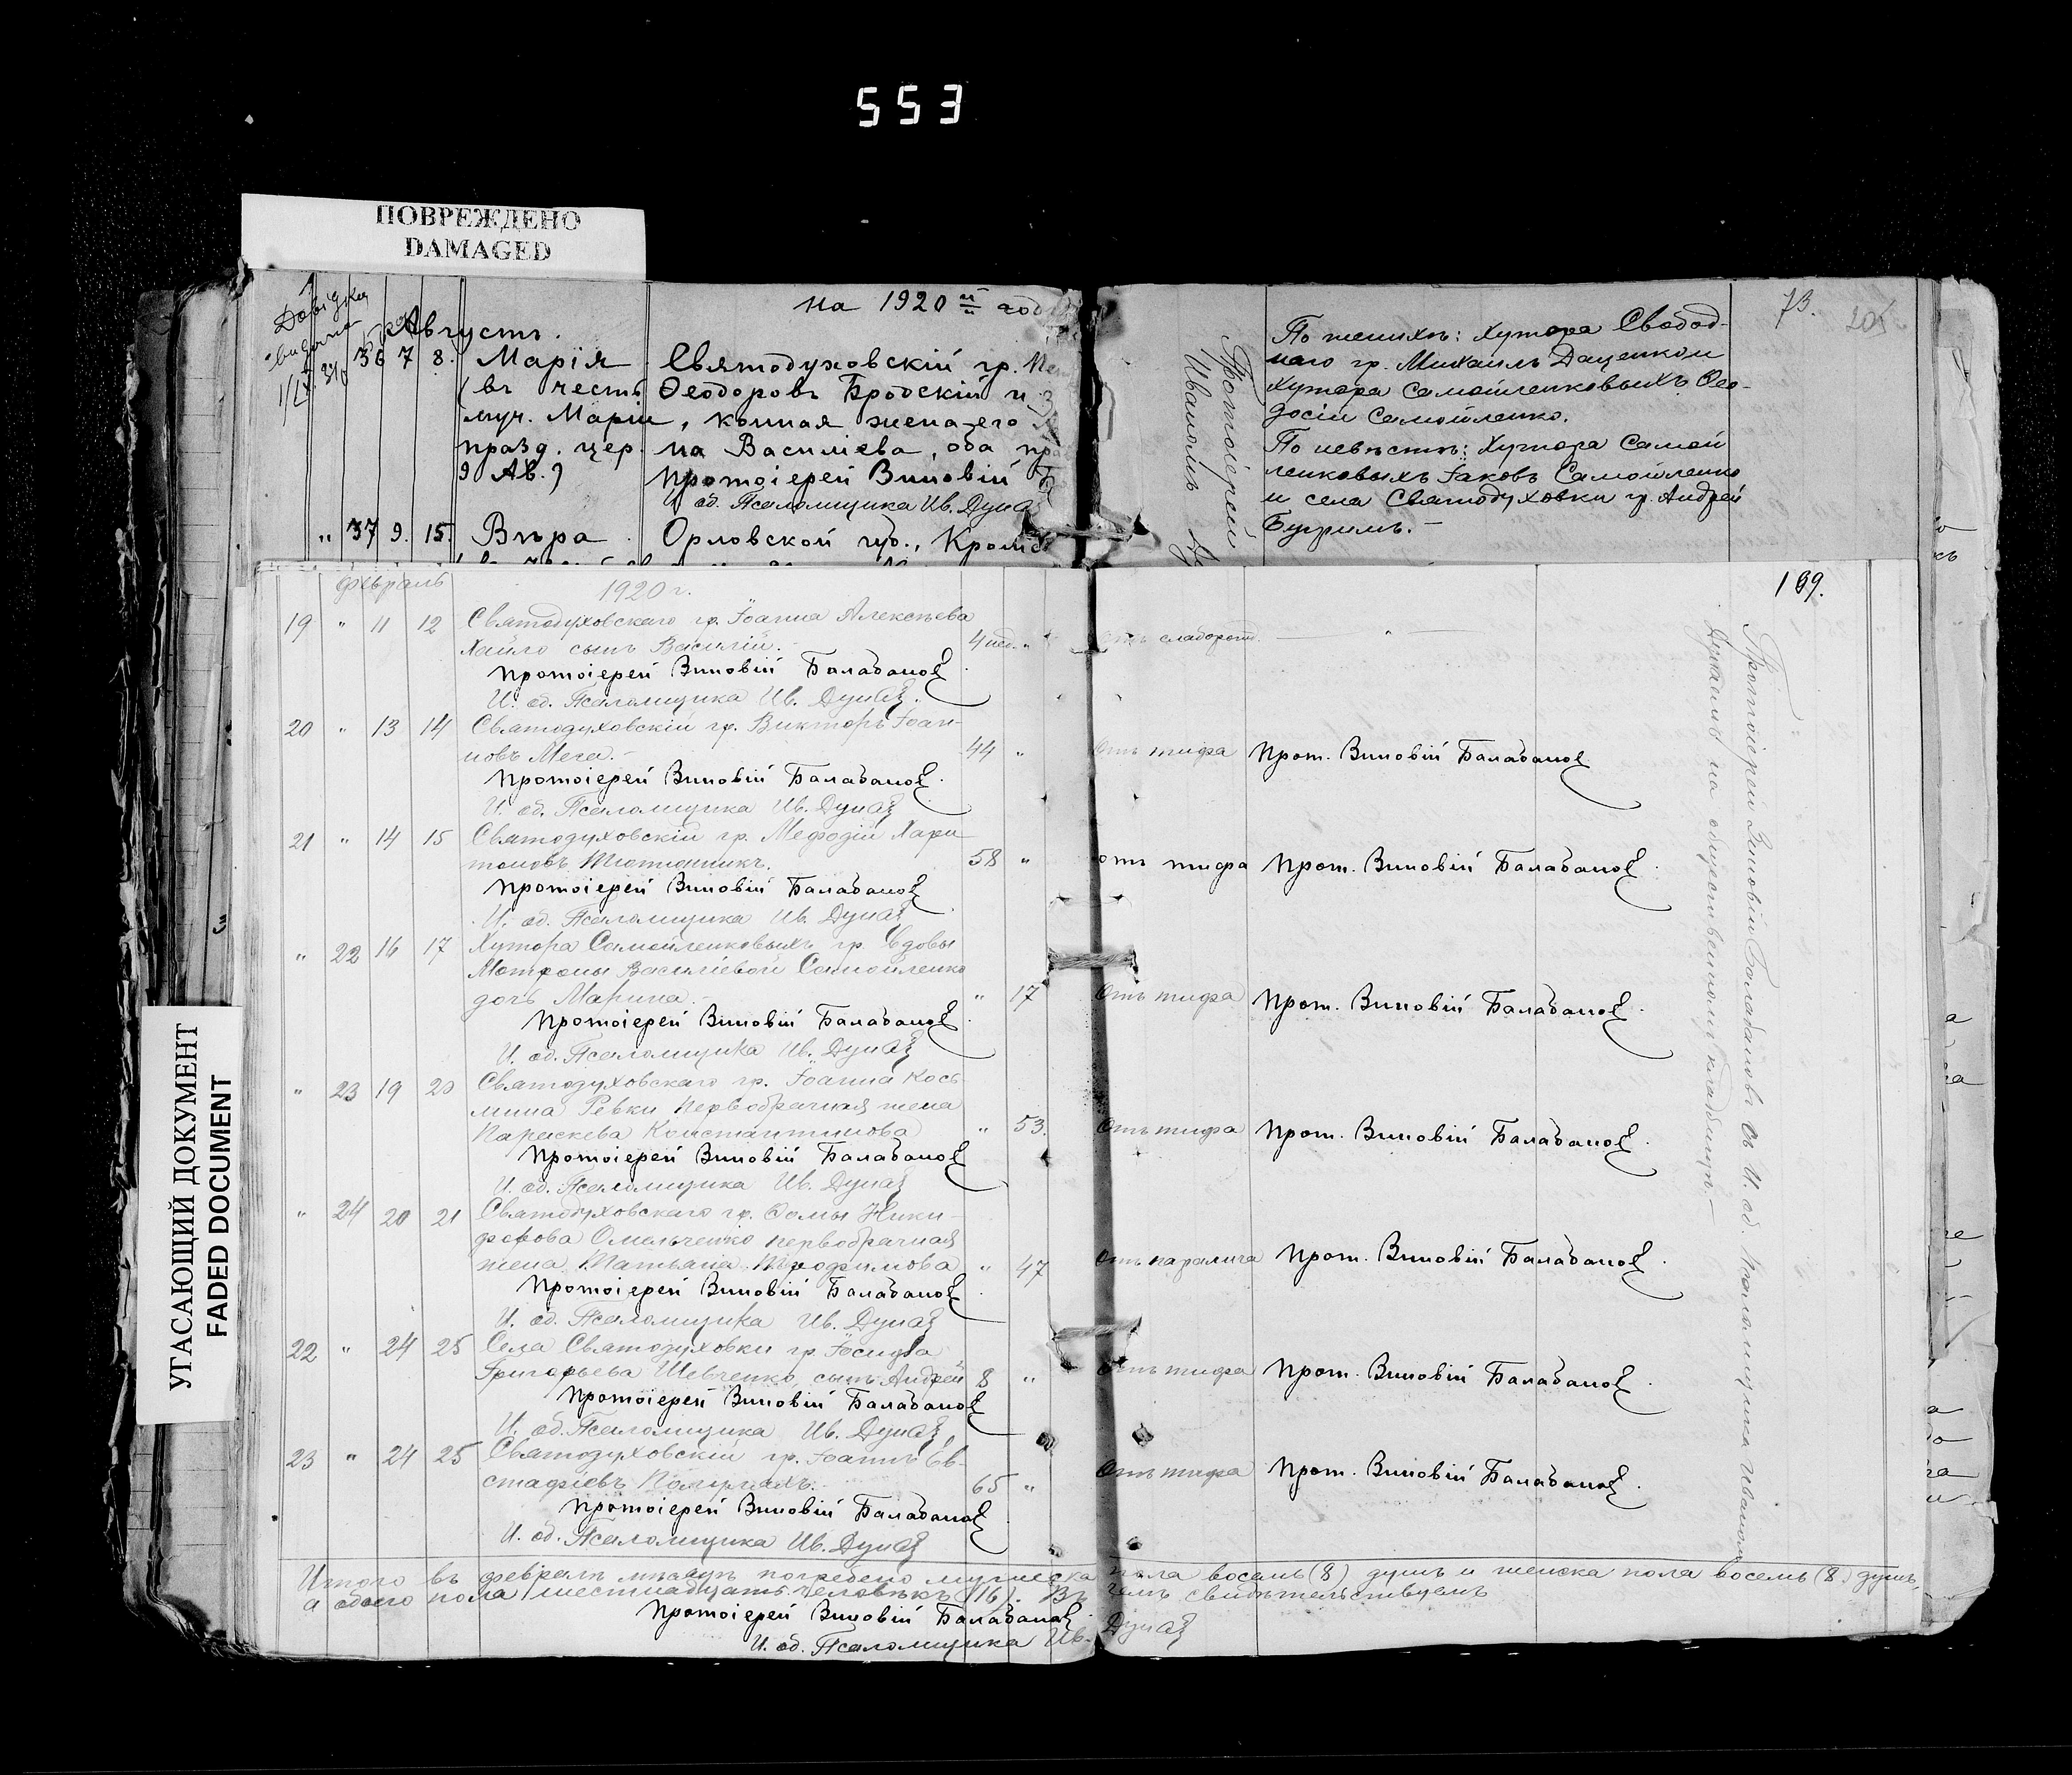 553
ПОВРЕЖДЕНО
DAMAGED
УГАСАЮЩИЙ ДОКУМЕНТ
FADED DOCUMENT
на 1920 й год
Августъ.
36 7 8. Марія Святодуховскій гр.
(въ честь Ѳеодоровъ Бродскій и
муч. Маріи, конная жена его
празд. цер. на Василіева, оба
9 Ав.) Протоіерей Зиновій
И. об. Псаломщика Ив. Дуна
" 37 9. 15. Вѣра Орловской губ.,
73.
205
По женихѣ: Хутора Свобод-
наго гр. Михаилъ Даценко и
Хутора Самойленковыхъ Ѳео-
досій Самойленко.
По невѣстѣ: Хутора Самой
ленковыхъ Іаковъ Самойленко
и села Святодуховки гр. Андрей
Бугримъ. -
Протоіерей
Февраль 1920 г.
199.
19 " 11 12 Святодуховскаго гр. Іоанна Алексѣева
Хайло сынъ Василій. - 4 нед. " слаборожд.
Протоіерей Зиновій Балабановъ
И. об. Псаломщика Ив. Дунай.
20 " 13 14 Святодуховскій гр. Викторъ Іоан-
новъ Мега. - 44 " Отъ тифа Прот. Зиновій Балабановъ
Протоіерей Зиновій Балабановъ.
И. об. Псаломщика Ив. Дунай
21 " 14 15 Святодуховскій гр. Мефодій Хари
тоновъ Тютюнникъ. 58 " отъ тифа Прот. Зиновій Балабановъ.
Протоіерей Зиновій Балабановъ
И. об. Псаломщика Ив. Дунай
" 22 16 17 Хутора Самойленковыхъ гр. вдовы
Мотроны Василіевой Самойленко
дочь Марина. - " 17 Отъ тифа Прот. Зиновій Балабановъ.
Протоіерей Зиновій Балабановъ.
И. об. Псаломщика Ив. Дунай
" 23 19 20 Святодуховскаго гр. Іоанна Кось
мина Ревки первобрачная жена
Параскева Константинова " 53. Отъ тифа Прот. Зиновій Балабановъ.
Протоіерей Зиновій Балабановъ
И. об. Псаломщика Ив. Дунай
" 24 20 21 Святодуховскаго гр. Ѳомы Ники-
форова Омельченко первобрачная
жена Татьяна Трофимова " 47 Отъ паралича Прот. Зиновій Балабановъ.
Протоіерей Зиновій Балабановъ.
И. об. Псаломщика Ив. Дунай
22 " 24 25 Села Святодуховки гр. Іосифа
Григорьева Шевченко сынъ Андрей 8 " Отъ тифа Прот. Зиновій Балабановъ.
Протоіерей Зиновій Балабановъ
И. об. Псаломщика Ив. Дунай
23 " 24 25 Святодуховскій гр. Іоаннъ Ев-
стафіевъ 65 " Отъ тифа Прот. Зиновій Балабановъ.
Протоіерей Зиновій Балабановъ
И. об. Псаломщика Ив. Дунай
Протоіерей Зиновій Балабановъ съ И. об. псаломщика Иваномъ
Дунаемъ на общественномъ кладбищѣ. -
Итого въ февралѣ мѣсяцѣ погребено мужеска пола восемь (8) душъ и женска пола восемь (8) душъ,
а обоего пола шестнадцать человѣкъ (16). Въ чемъ свидѣтельствуемъ
Протоіерей Зиновій Балабановъ.
И. об. Псаломщика Ив. Дунай